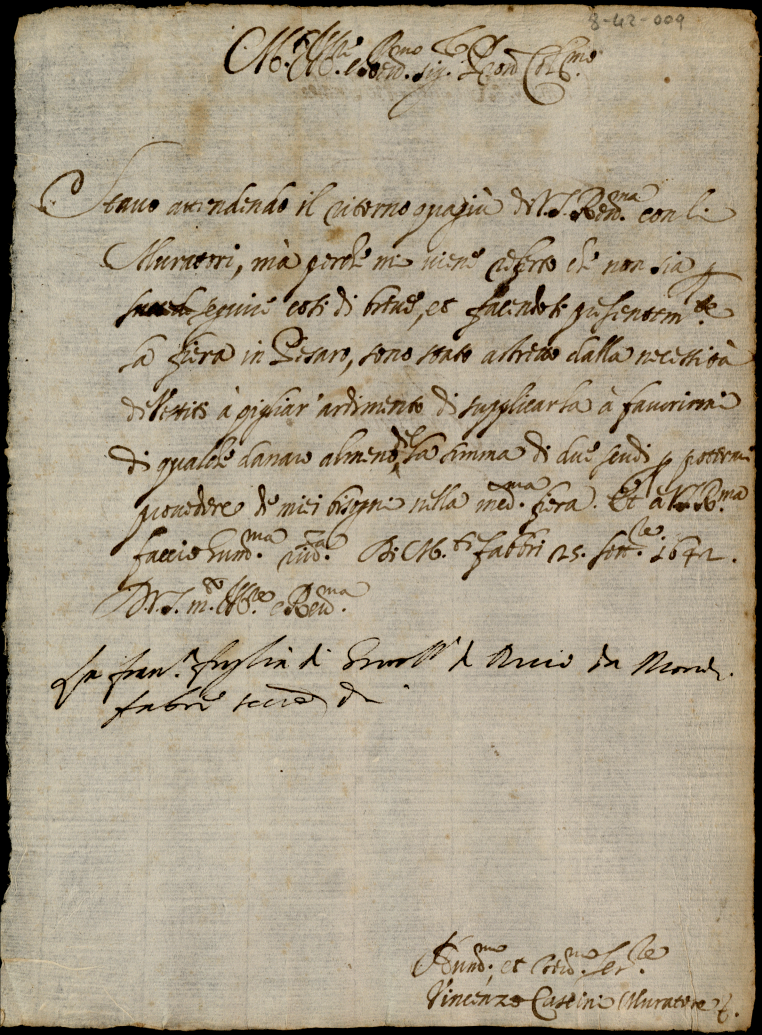 8-42-009
M.to Ill.re e Rev.mo Sig.r P.ron Col.mo
Stavo attendendo il ritorno quagiù di V.S. Rev.ma con li
Muratori, mà perche mi viene referto che non sia p
seguire così di breve, et facendosi presentem.te
la fiera in Pesaro, sono stato astretto dalla necessità
à pigliar' ardimento di supplicarla à favorirmi
di qualche danaro almeno della summa di due scudi p potermi
provedere de miei bisogni nella med.ma fiera. Et à V.S. R.ma
faccio hum.ma riv.za Di M.te fabbri 25. Sett.re 1642.
D. V. S. m.to Ill.re e Rev.ma
fran.ca di da Monte
fabri
Hum.mo et dev.mo Ser.re
Vincenzo Muratore